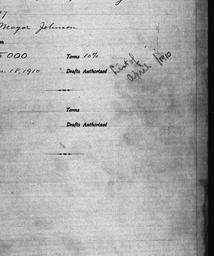 Mayor Johnson
5000 Terms 10%
18, 1910 Drafts Authorized
List of
April 1910
Terms
Drafts Authorized